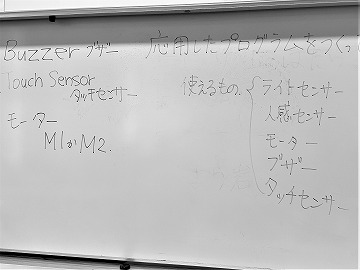 Buzzer ブザー
Touch Sensor
タッチセンサー
モーター
M1かM2.
応用したプログラムをつくっ
使えるもの
ライトセンサー
人感センサー
モーター
ブザー
タッチセンサー